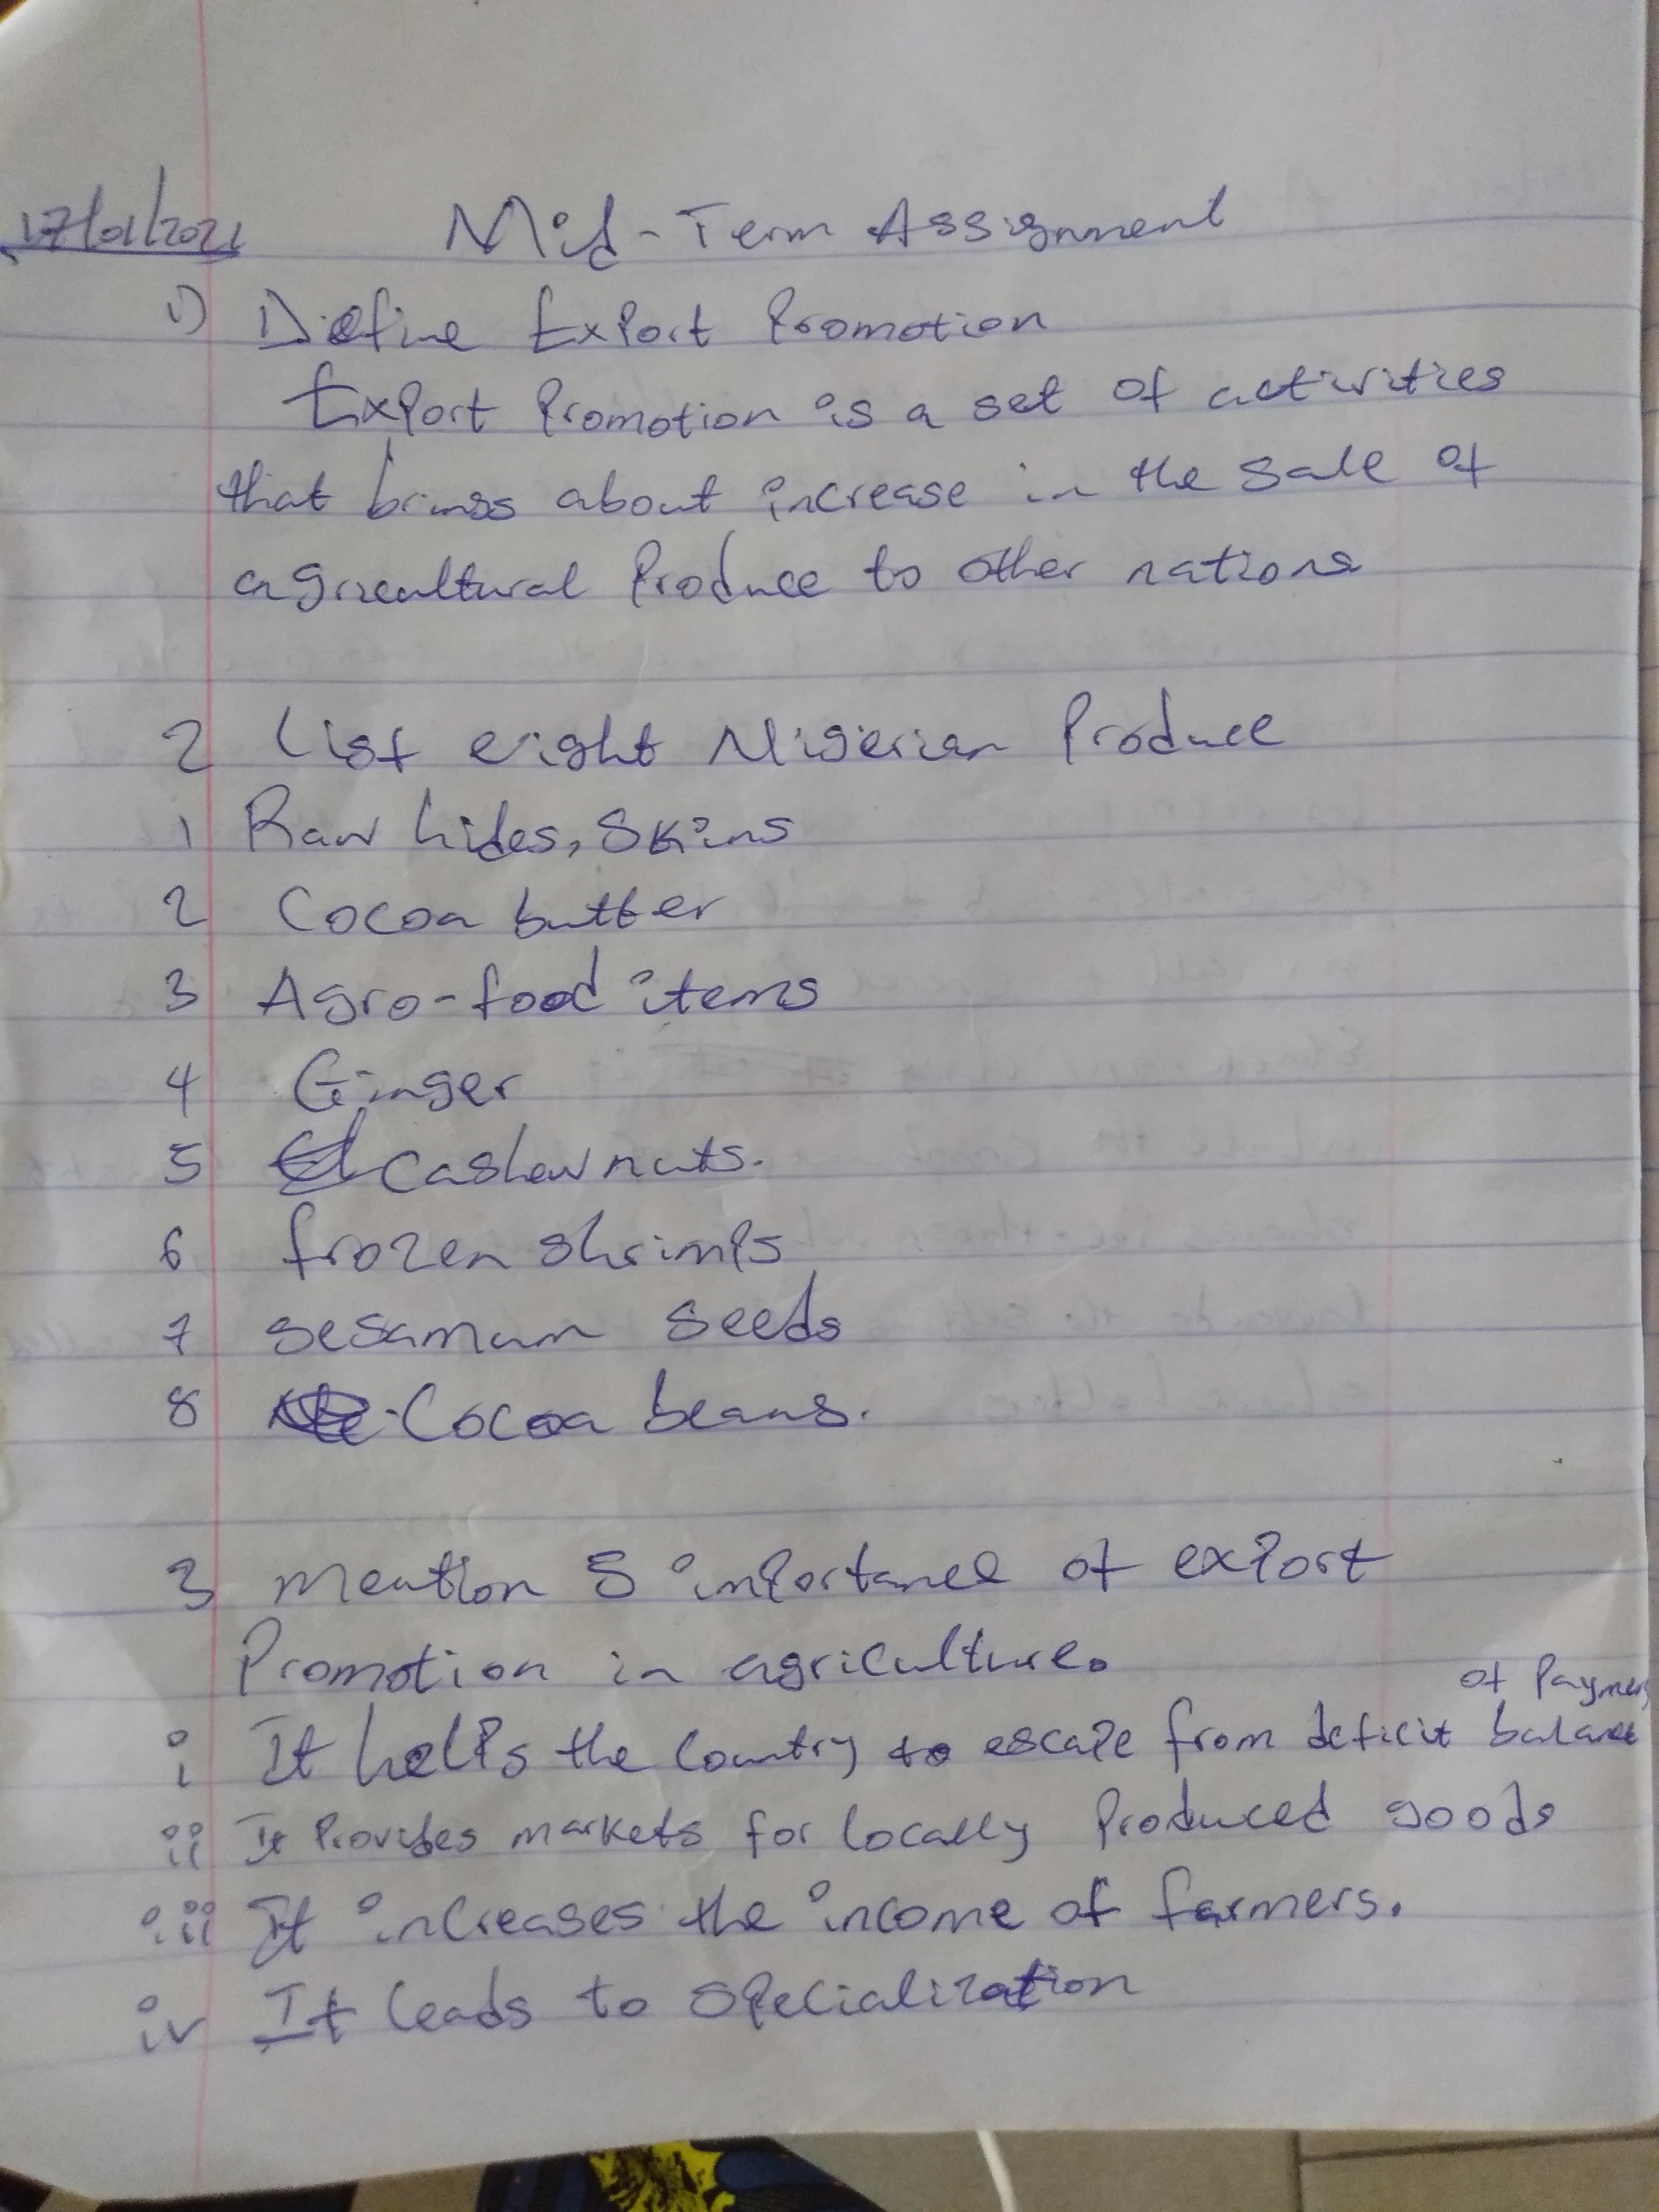 17/01/2021 Mid-Term Assignment
1) Define Export Promotion
Export Promotion is a set of activities
that brings about increase in the sale of
agricultural Produce to other nations
2 List eight Nigerian Produce
1 Raw hides, Skins
2 Cocoa butter
3 Agro-food items
4 Ginger
5 Cashew nuts.
6 frozen shrimps
7 sesamum seeds
8 Cocoa beans.
3 mention 5 importance of export
Promotion in agriculture.
of Payment
i It helps the Country to escape from deficit balance
ii It Provides markets for locally Produced goods
iii It increases the income of farmers.
iv It leads to specialization